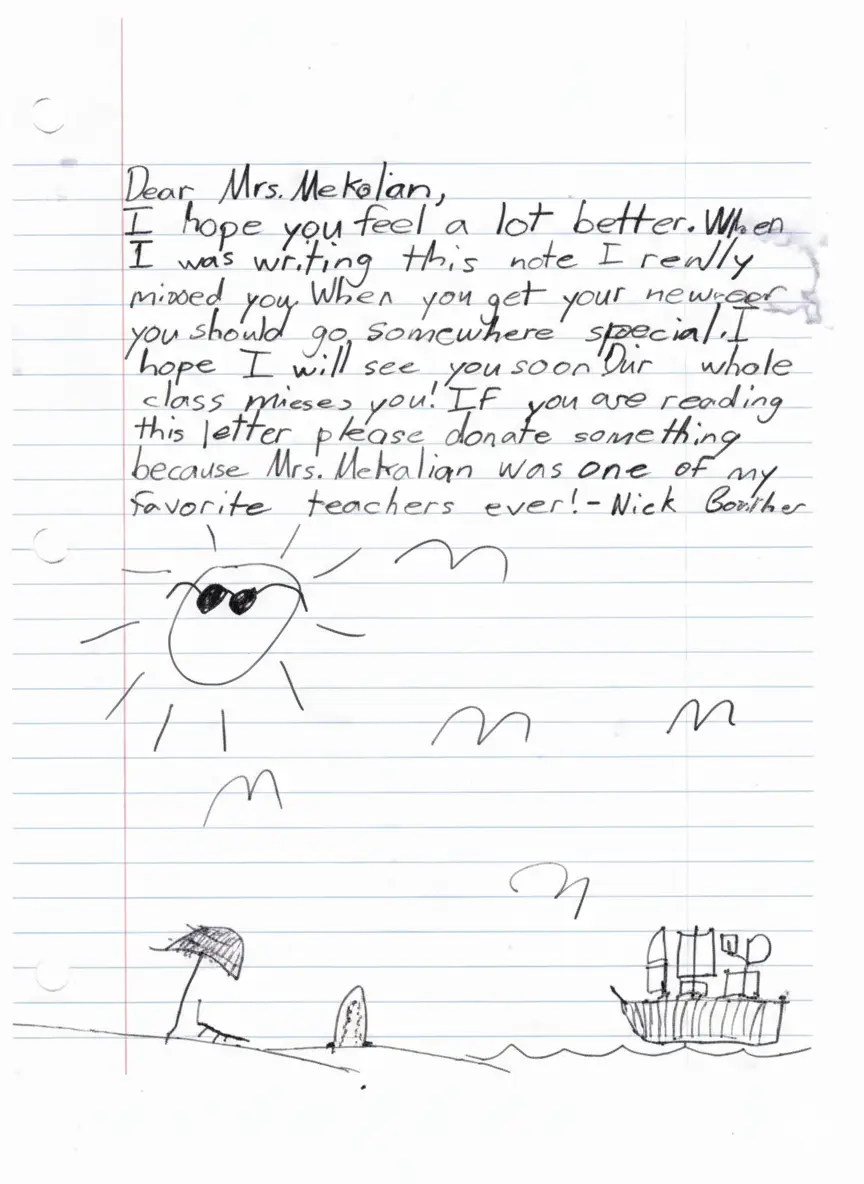 Dear Mrs. Mekolian,
I hope you feel a lot better. When
I was writing this note I really
missed you. When you get your new
you should go somewhere special. I
hope I will see you soon Our whole
class misses you! If you are reading
this letter please donate something
because Mrs. Mekalian was one of my
favorite teachers ever! - Nick